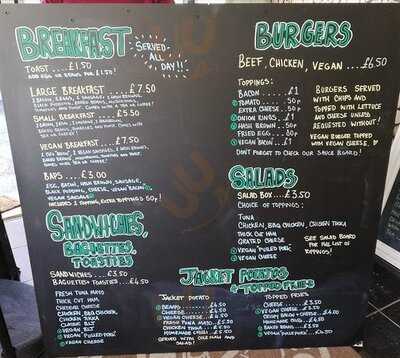 BREAKFAST
SERVED
ALL
DAY!!
TOAST ... £1.50
ADD EGG OR BEANS FOR £1.50!
LARGE BREAKFAST .... £7.50
SMALL BREAKFAST .... £5.50
VEGAN BREAKFAST .... £7.50
BAPS .... £3.00
EGG, BACON, HASH BROWN, SAUSAGE,
BLACK PUDDING, CHEESE, VEGAN BACON
VEGAN SAUSAGE
INCLUDES 2 TOPPINGS, EXTRA TOPPING 50p!
SANDWHICHES,
BAGUETTES,
TOASTIES
SANDWICHES ... £3.50
BAGUETTES+ TOASTIES ... £4.50
FRESH TUNA MAYO
THICK CUT HAM
CHEDDAR CHEESE
CHICKEN, BBQ CHICKEN,
CHICKEN TIKKA
CLASSIC BLT
VEGAN BLT
VEGAN "PULLED PORK"
VEGAN CHEESE
BURGERS
BEEF, CHICKEN, VEGAN .... £6.50
TOPPINGS:
BACON ..... £1
TOMATO ..... 50p
EXTRA CHEESE .. 50p
ONION RINGS .. £1
HASH BROWN .. 50p
FRIED EGG ... 80p
VEGAN BACON .. £1
BURGERS SERVED
WITH CHIPS AND
TOPPED WITH LETTUCE
AND CHEESE UNLESS
REQUESTED WITHOUT!
VEGAN BURGER TOPPED
WITH VEGAN CHEESE
DON'T FORGET TO CHECK OUR SAUCE BOARD!
SALADS
SALAD BOX ... £3.50
CHOICE OF TOPPINGS:
TUNA
CHICKEN, BBQ CHICKEN, CHICKEN TIKKA
THICK CUT HAM
GRATED CHEESE
VEGAN "PULLED PORK"
VEGAN CHEESE
SEE SALAD BOARD
FOR THE LIST OF
TOPPINGS!
JACKET POTATOES
+ TOPPED FRIES
JACKET POTATO
BEANS ..... £4.50
CHEESE ..... £4.50
VEGAN CHEESE ... £4.50
FRESH TUNA MAYO
CHICKEN TIKKA
HOMEMADE CHILLI
SERVED WITH COLESLAW AND
SALAD!
TOPPED FRIES
CHEESE
VEGAN CHEESE
CRISPY BACON + CHEESE
HOMEMADE CHILLI
BEANS
VEGAN "PULLED PORK"